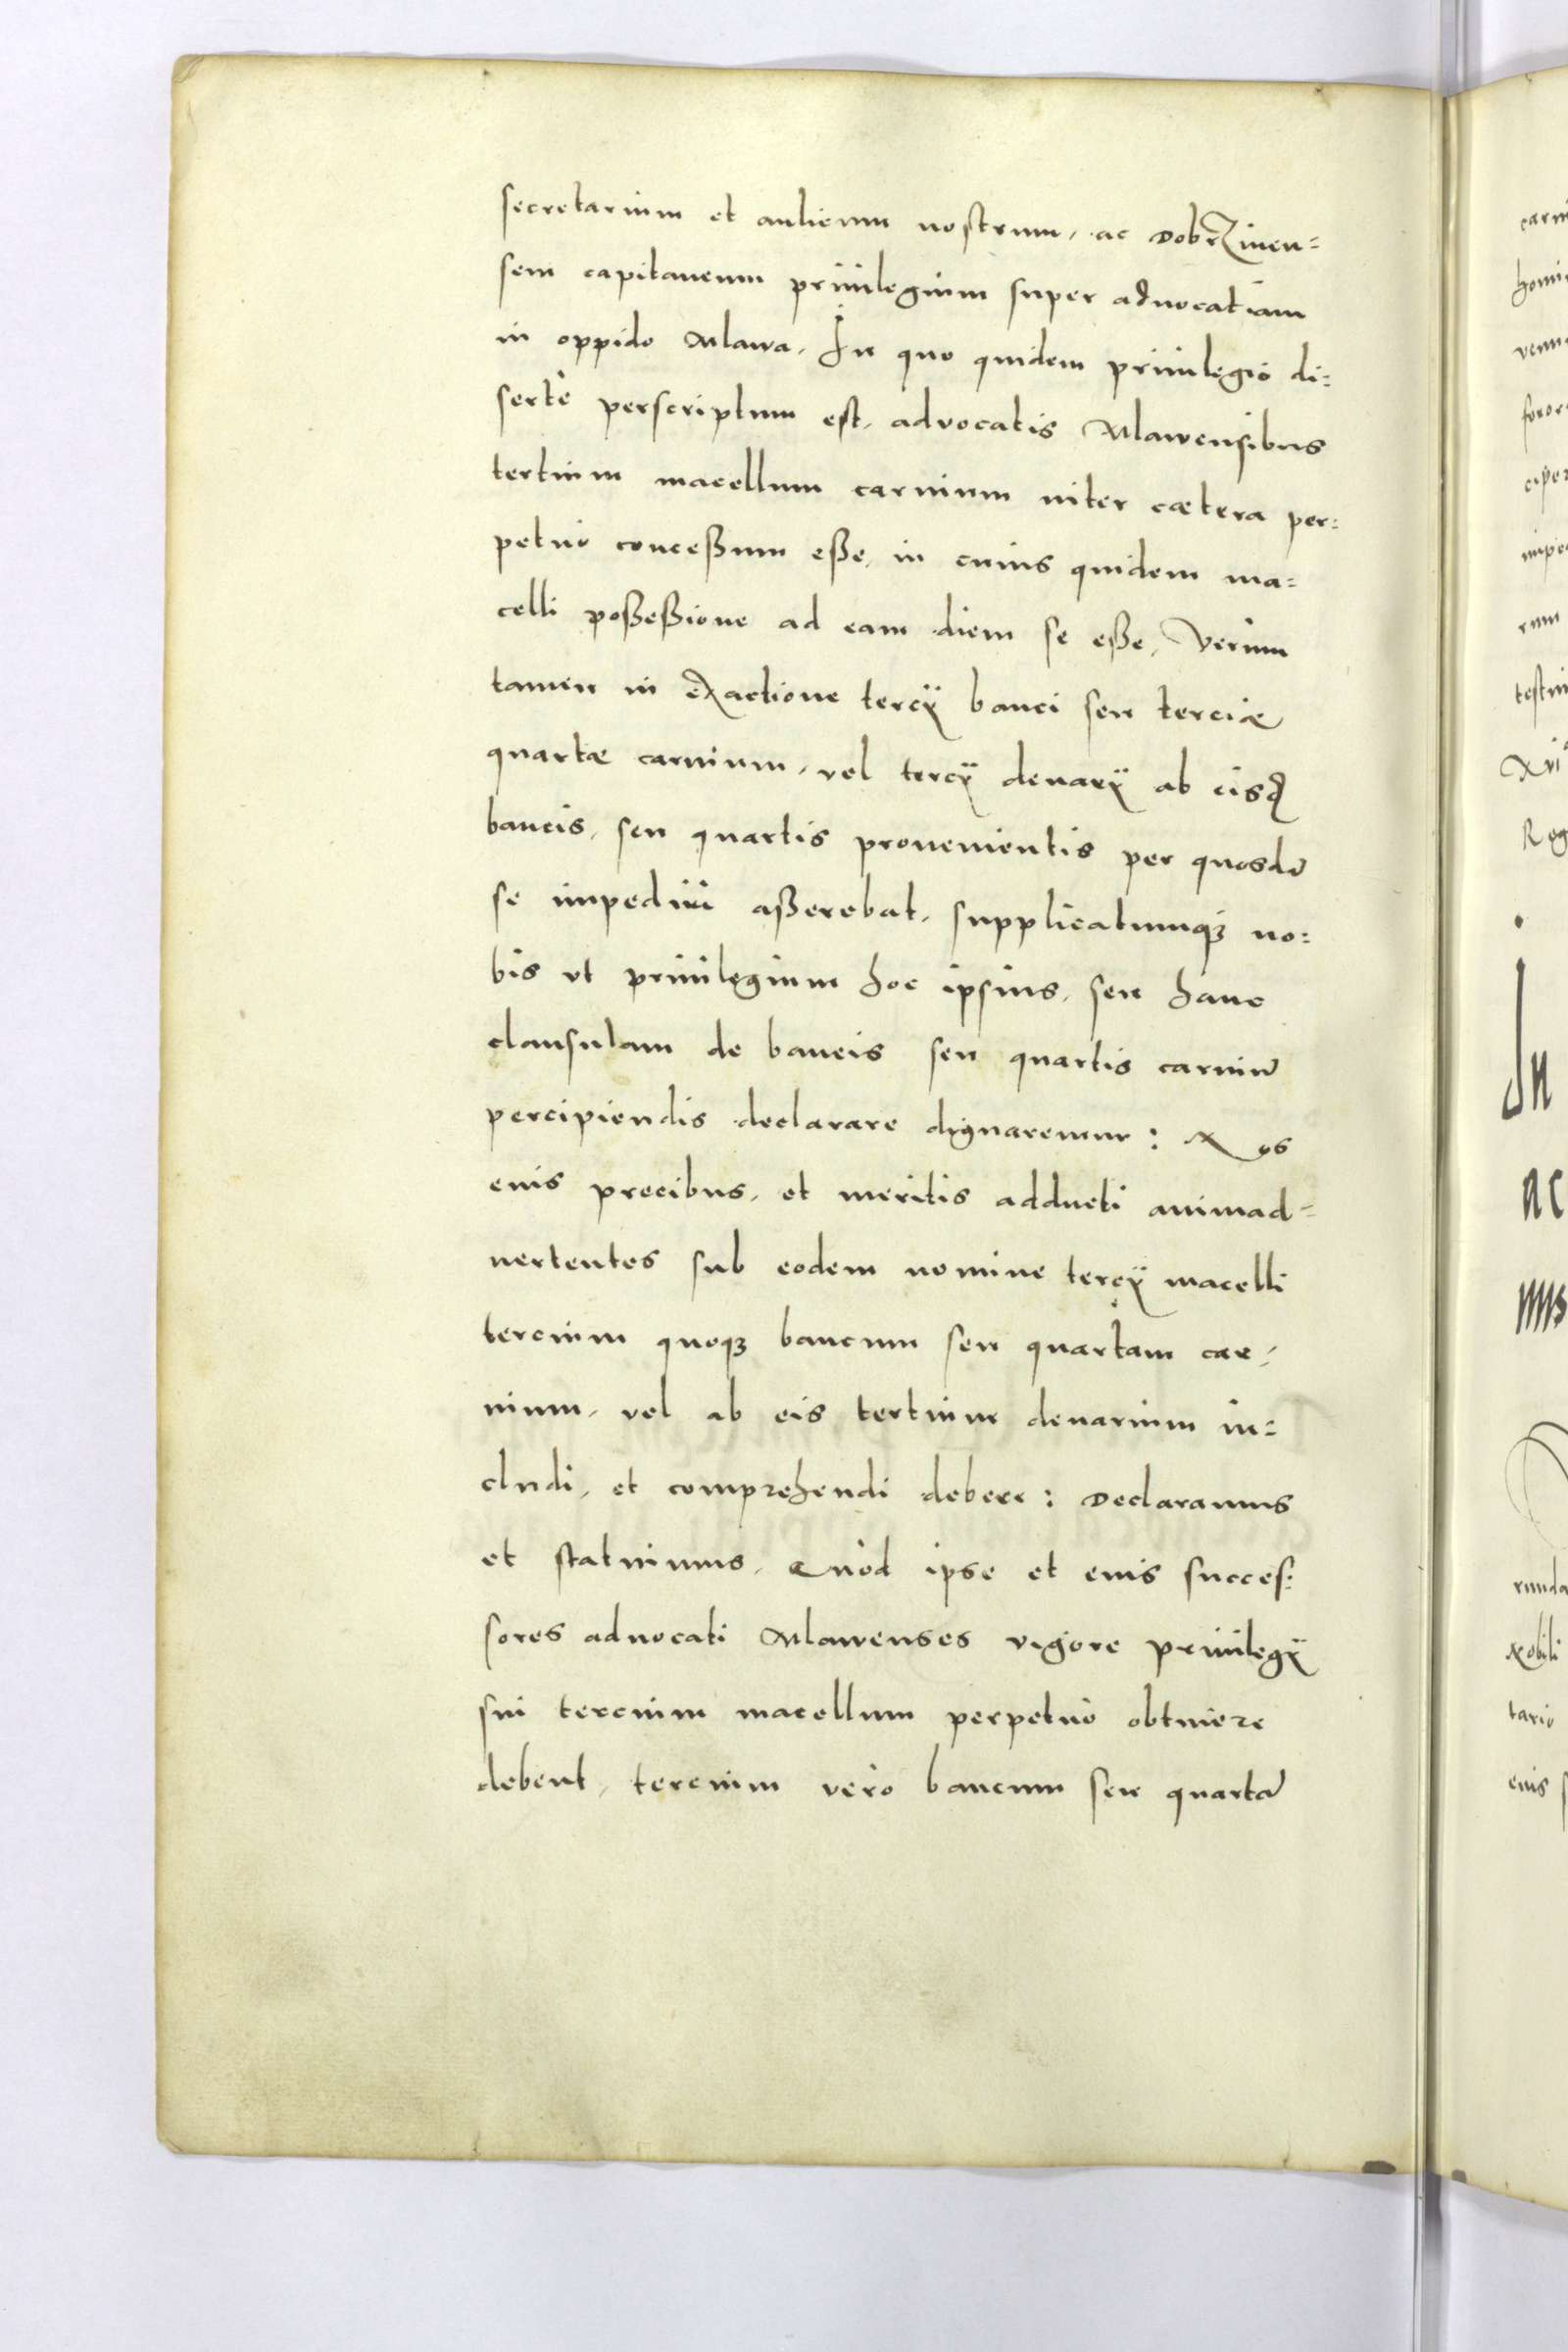 secretarium et aulicum nostrum, ac Dobrzinen=
sem capitaneum priuilegium super aduocatiam
in oppido Mlawa. In quo quidem priuilegio di=
sertè perscriptum est, advocatis Mlawensibus
tertium macellum carnium inter cætera per=
petuò conceßum eße, in cuius quidem ma=
celli poßeßione ad eam diem se eße, Verum
tamen in exactione tercÿ banci seu terciæ
quartæ carnium, vel tercÿ denarÿ ab eisd
bancis, seu quartis prouenientis per quosdā
se impediri aßerebat, supplicatumqꝫ no=
bis vt priuilegium hoc ipsius, seu hanc
clausulam de bancis seu quartis carniū
percipiendis declarare dignaremur: Nos
eius precibus, et meritis adducti animad=
uertentes sub eodem nomine tercÿ macelli
tercium quoqꝫ bancum seu quartam car,
nium, vel ab eis tertium denarium in=
cludi, et comprehendi debere: Declaramus
et statuimus, Quòd ipse et eius succes=
sores aduocati Mlawenses vigore priuilegÿ
sui tercium macellum perpetuò obtinere
debent, tercium verò bancum seu quartā
In
ac